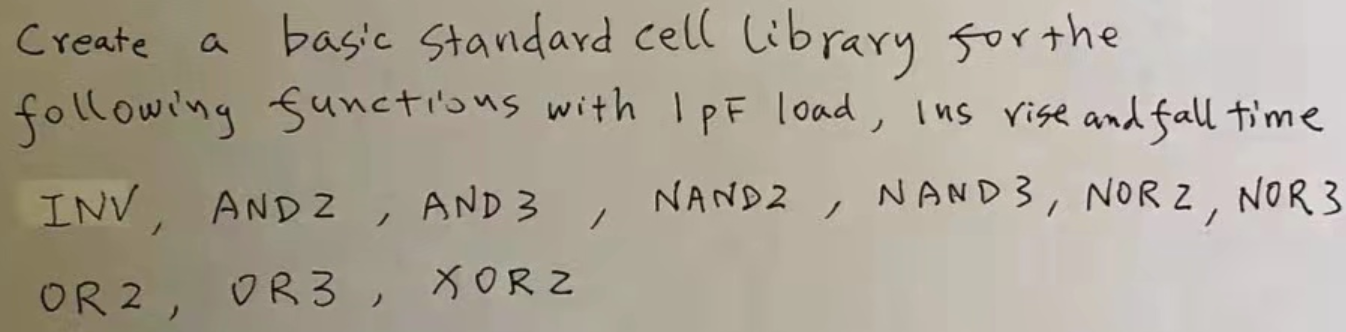 Create a basic standard cell library for the
following functions with 1 pF load, 1ns rise and fall time
INV, AND2, AND3, NAND2, NAND3, NOR2, NOR3
OR2, OR3, XOR2